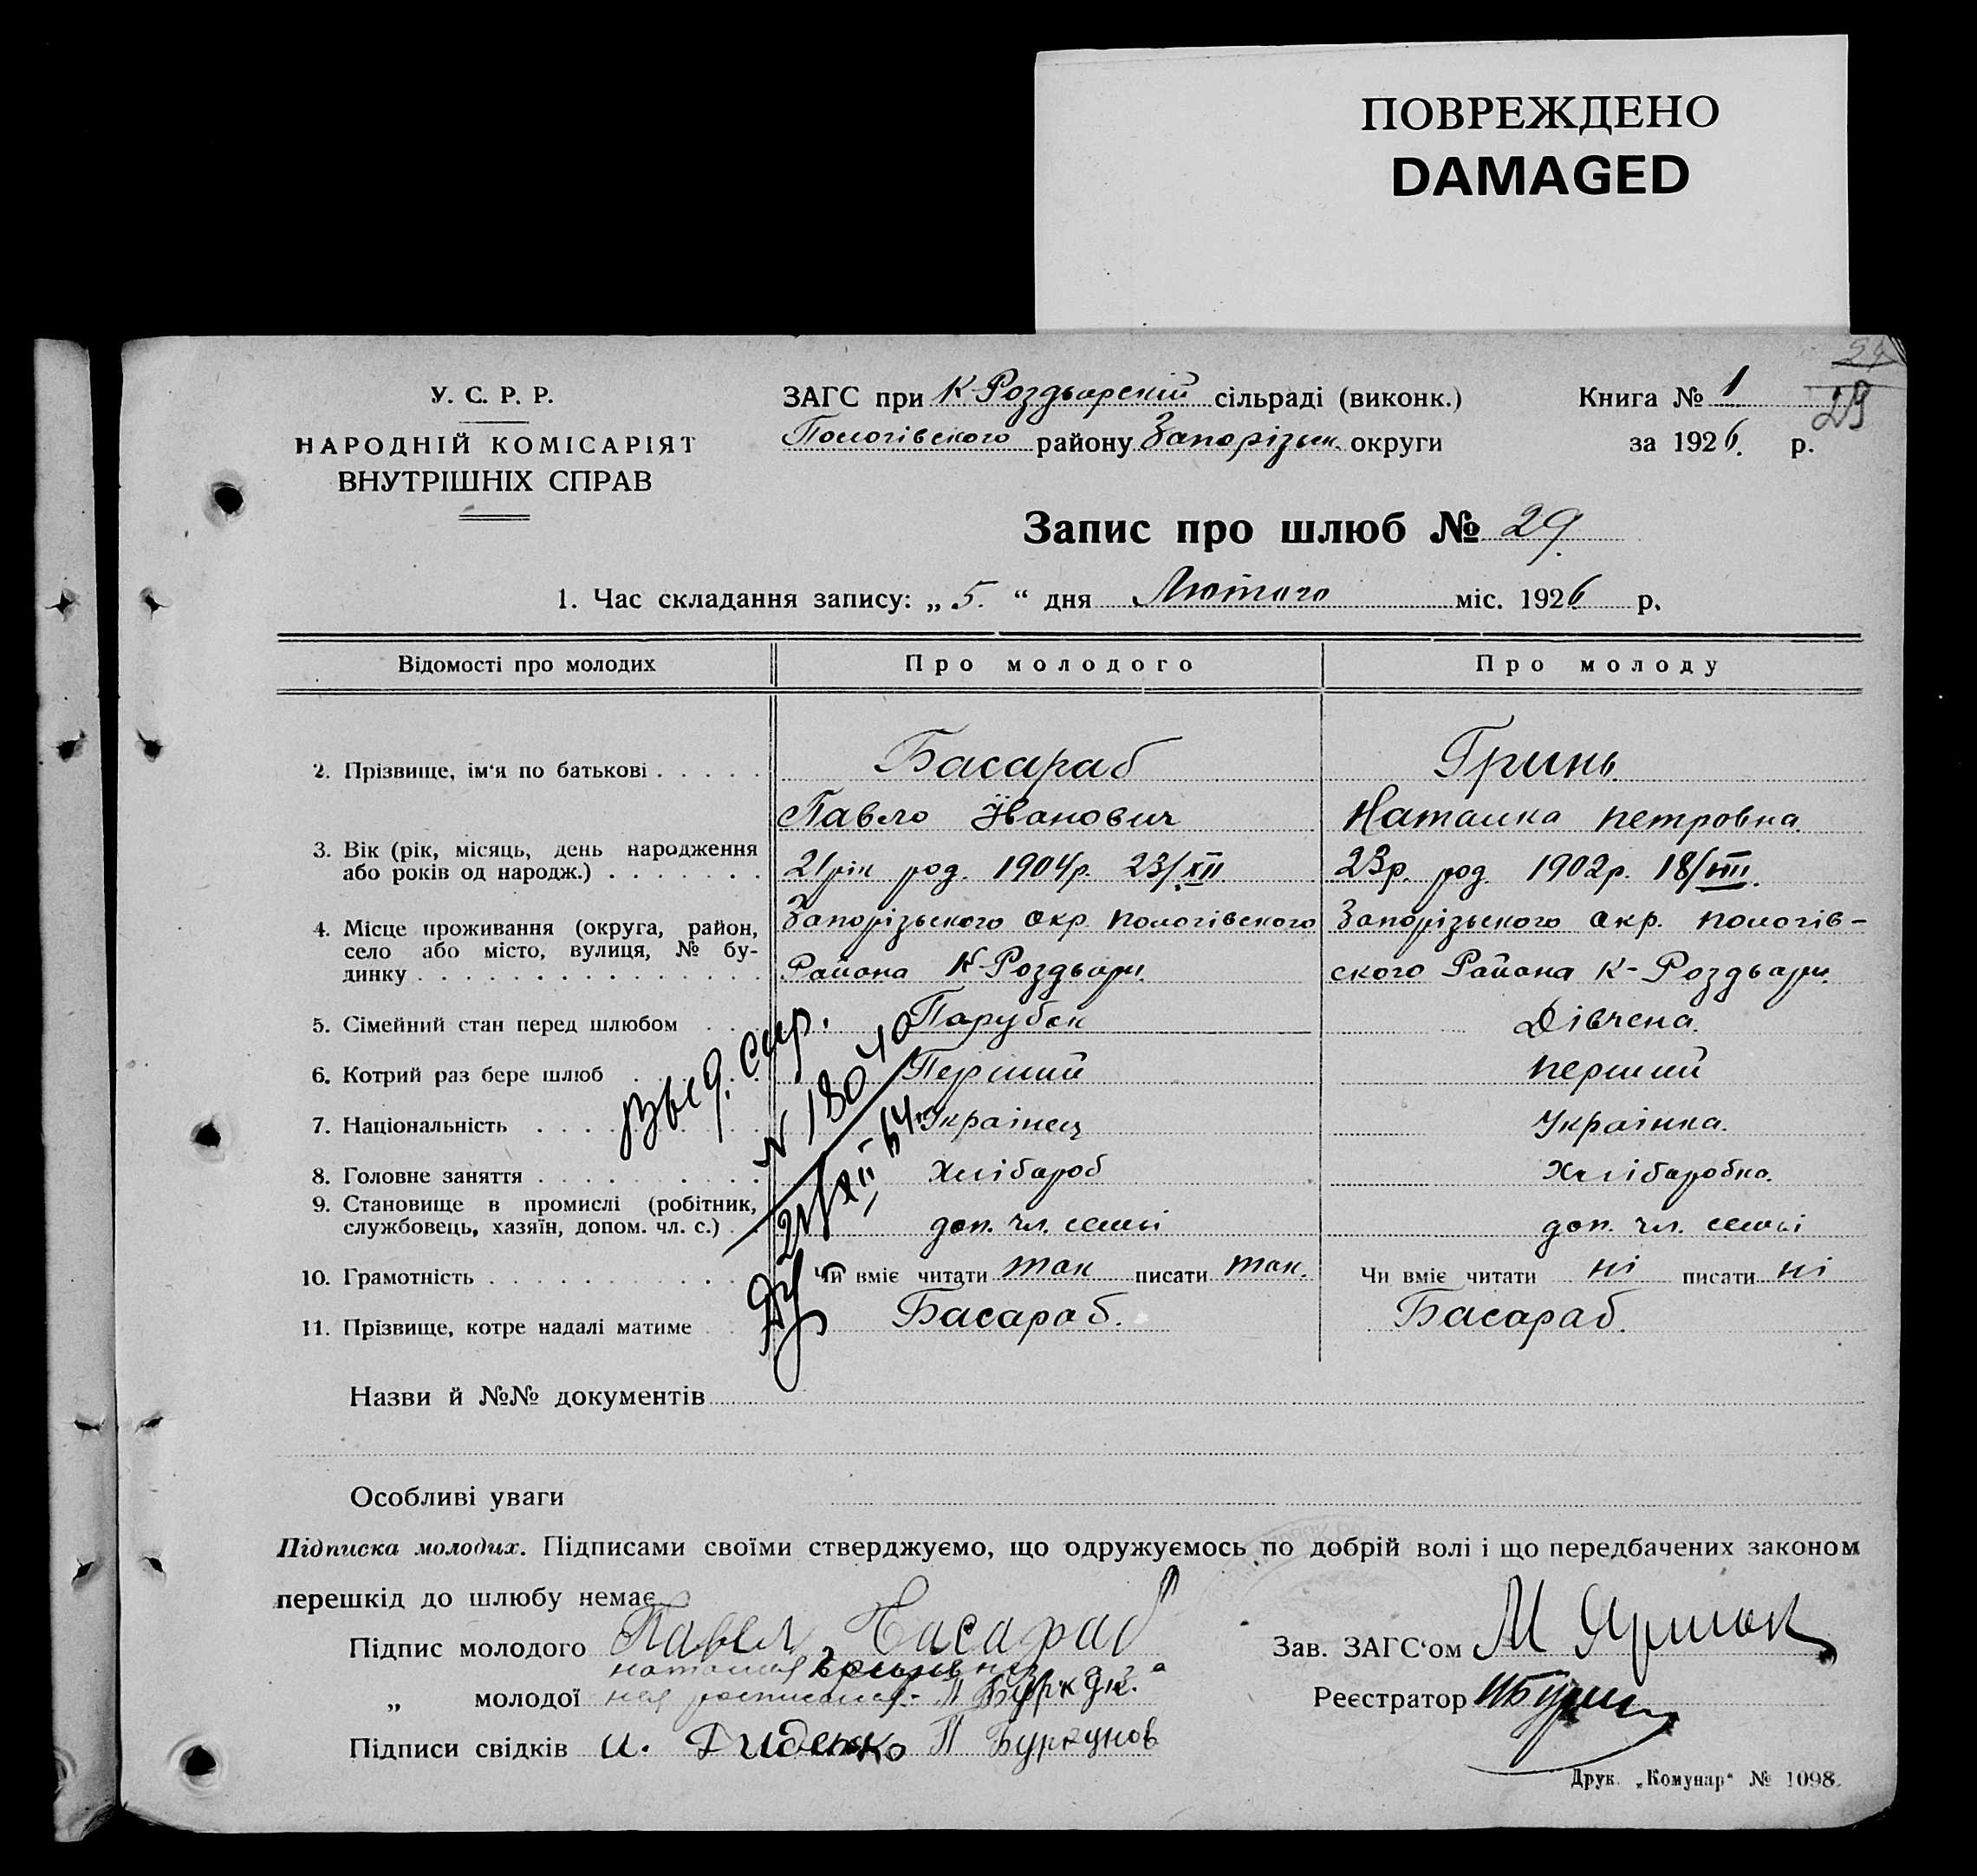 ПОВРЕЖДЕНО
DAMAGED
24
29
У. С. Р. Р.
НАРОДНІЙ КОМІСАРІЯТ
ВНУТРІШНІХ СПРАВ
ЗАГС при К-Роздьорській сільраді (виконк.)
Пологівского району Запорізьк. округи
Книга № 1
за 1926. р.
Запис про шлюб № 29.
1. Час складання запису: „ 5. “ дня Лютого міс. 1926 р.
Відомості про молодих Про молодого Про молоду
2. Прізвище, ім‘я по батькові . . . . . Басараб Гринь
Павло Іванович Наталка петровна
3. Вік (рік, місяць, день народження
або років од народж.) . . . . . . . 21 рік род. 1904р. 23/XII 23р. род. 1902р. 18/VIII.
4. Місце проживання (округа, район, Запорізьского окр. пологівского Запорізьского окр. пологів-
село або місто, вулиця, № бу-
динку . . . . . . . . . . . . . . . Района К-Роздьори. ского Района К-Роздьори.
5. Сімейний стан перед шлюбом . . . Парубок Дівчена.
6. Котрий раз бере шлюб . . . . . . Перший перший
7. Національність . . . . . . . . . . Українец Українка.
8. Головне заняття . . . . . . . . . . Хлібароб Хлібаробка.
9. Становище в промислі (робітник,
службовець, хазяїн, допом. чл. с.) . доп. чл. семьі доп. чл. семьі
10. Грамотність . . . . . . . . . . . . Чи вміє читати так писати так. Чи вміє читати ні писати ні
11. Прізвище, котре надалі матиме . . Басараб. Басараб.
Выд. спр.
N 18040
21/XII-64
Назви й №№ документів
Особливі уваги
Підписка молодих. Підписами своїми стверджуємо, що одружуємось по добрій волі і що передбачених законом
перешкід до шлюбу немає
Підпис молодого Павел Басараб Зав. ЗАГС‘ом М Ярмак
„ молодої Реєстратор
Підписи свідків и. Диденко П Буркунов
Друк. „Комунар“ № 1098.